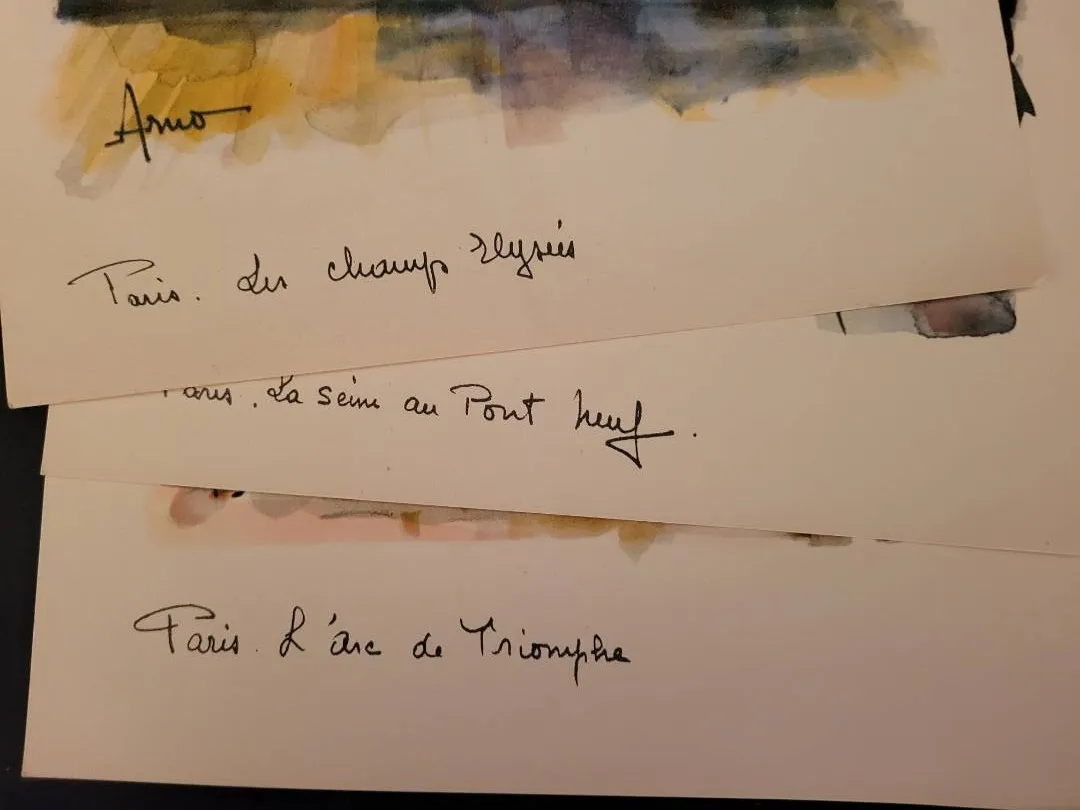 Arno
Paris. Les champs Elysées
Paris. La Seine au Pont Neuf.
Paris. L'arc de Triomphe